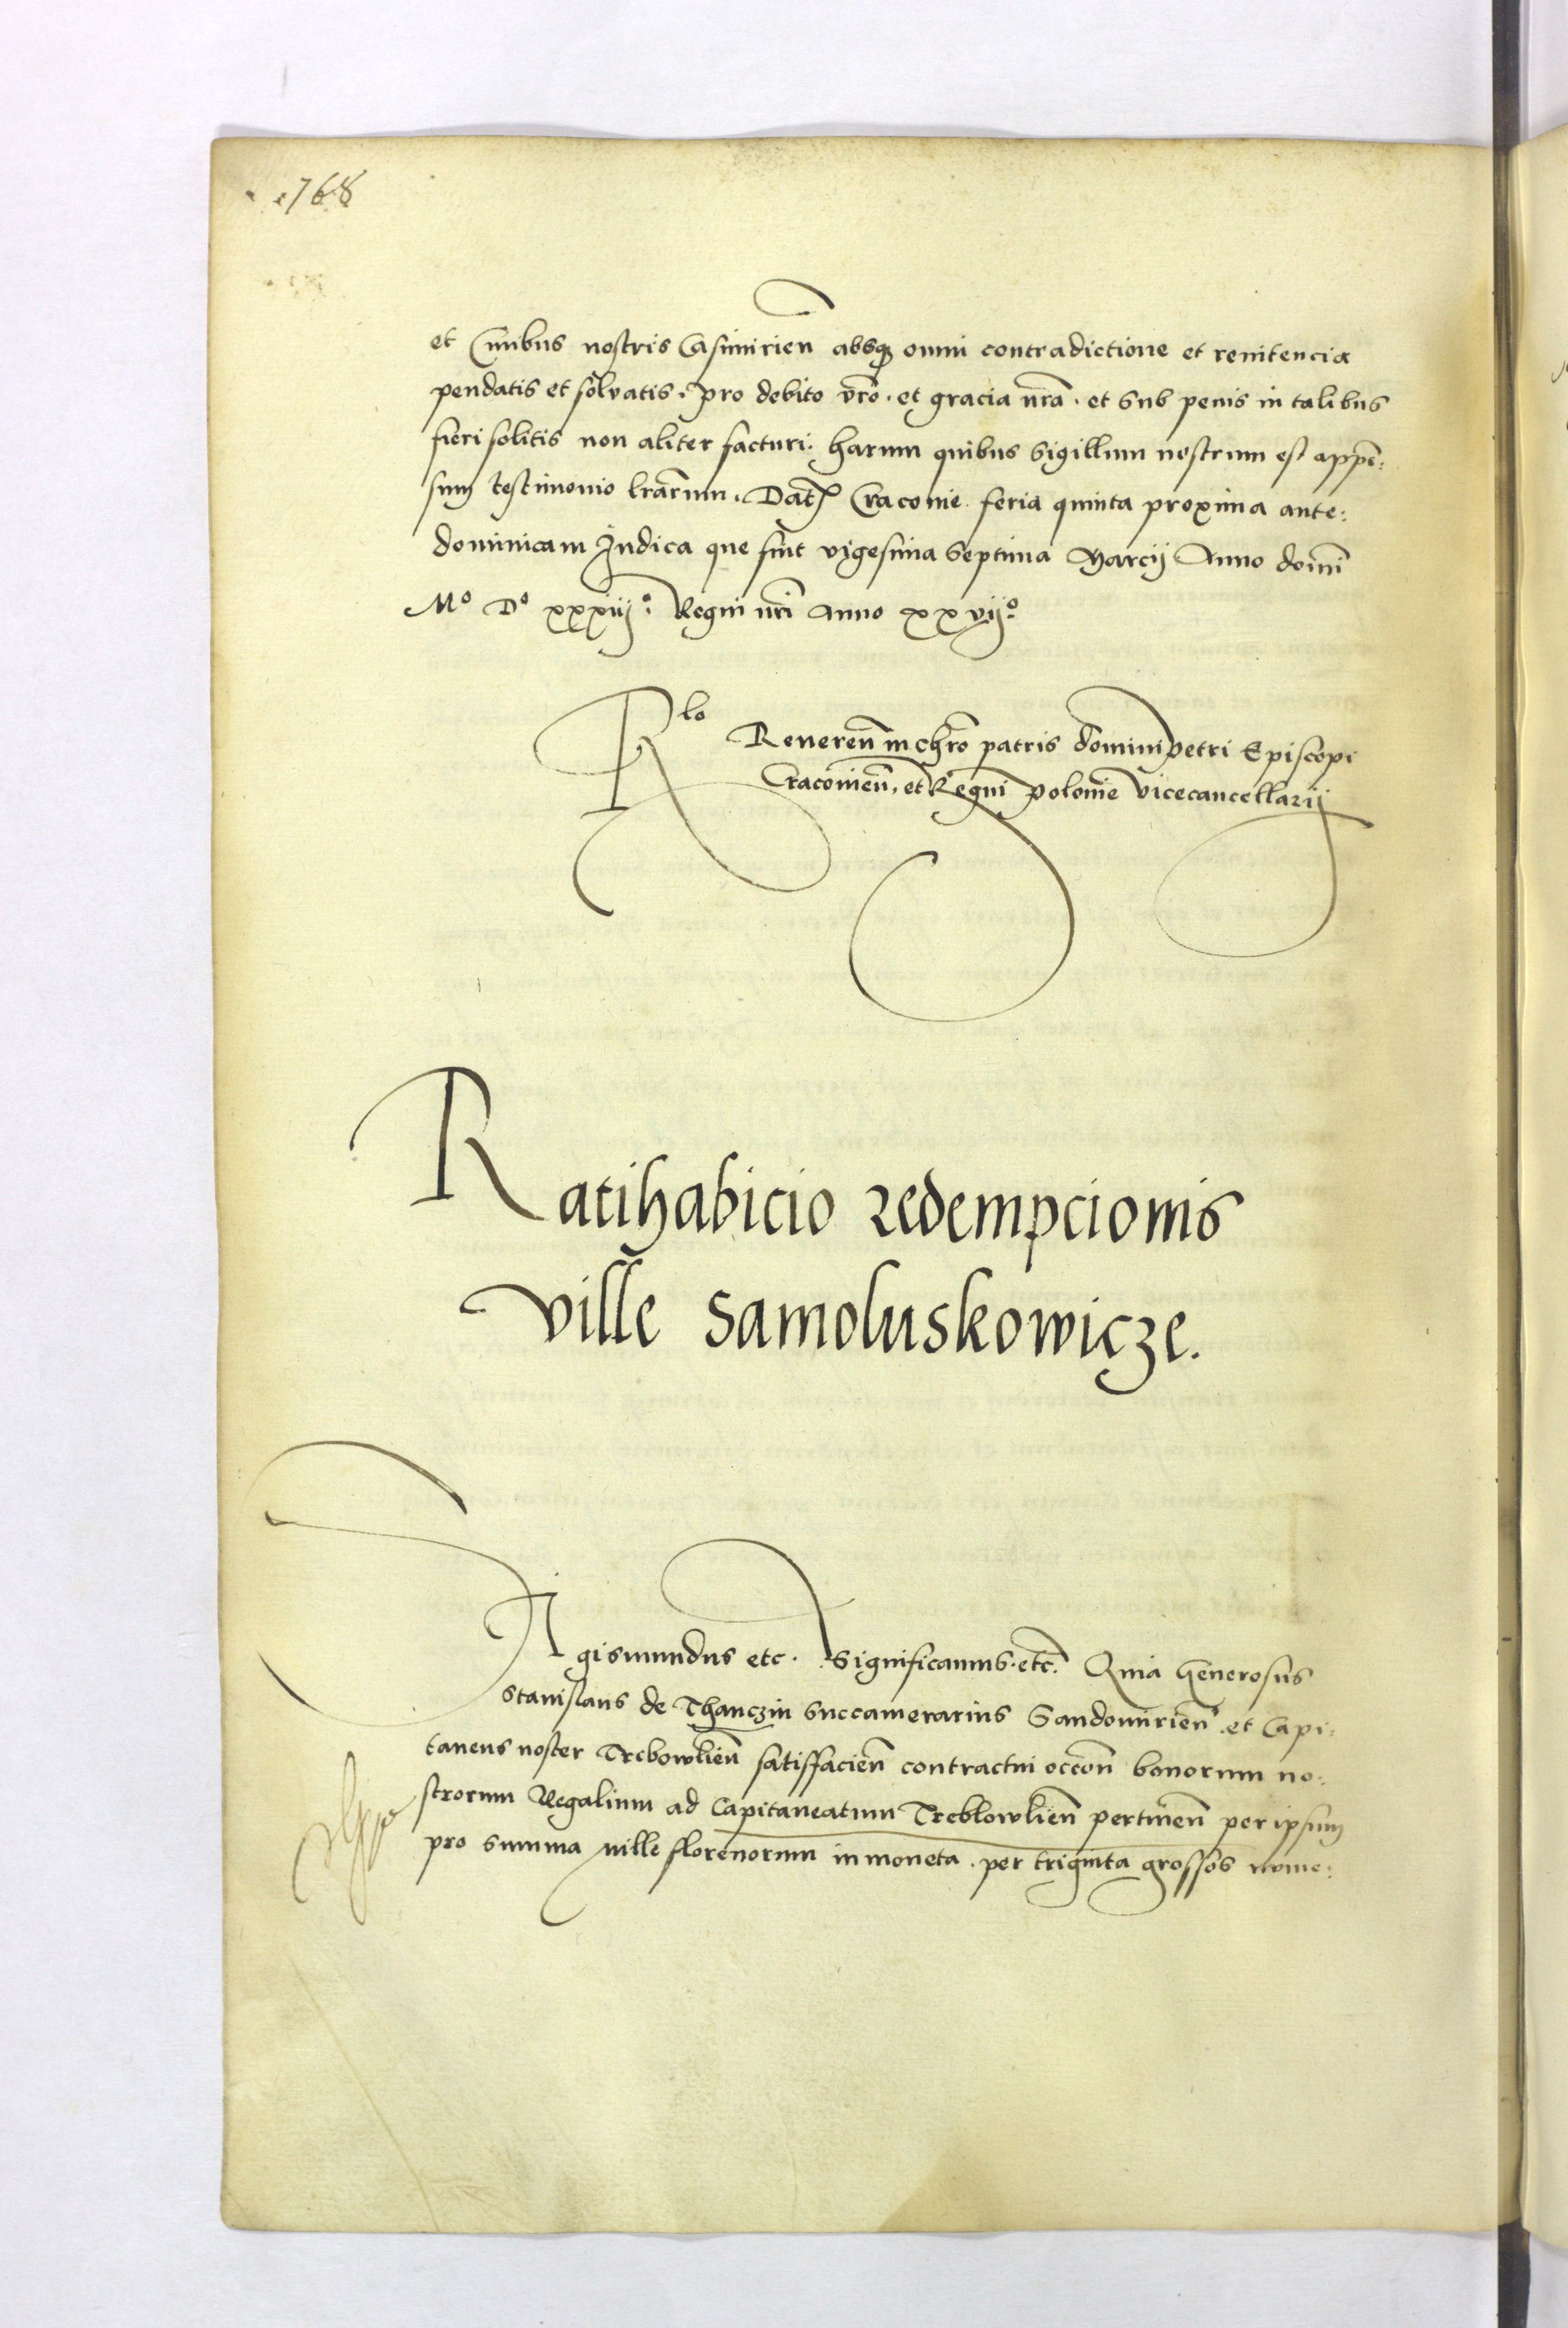 768
et Civibus nostris Casimirien absq3 omni contradictione et renitencia
pendatis et solvatis. pro debito vro. et gracia nra. et sub penis in talibus
fieri solitis non aliter facturi. harum quibus Sigillum nostrum est appen:
sum testimonio lrarum. Dat Cracovie feria quinta proxima ante:
dominicam Judica que fuit vigesima Septima Marcij Anno domini
Mº Dº xxxiiijº. Regni nri Anno xxviijº
Rlo Reveren in chro patris domini petri Episcopi
Cracovien. et Regni polonie vicecancellarij
Ratihabicio redempcionis
ville Samoluskowicze.
Sigismundus etc. Significamus. etc. Quia Generosus
Stanislaus de Thanczin Succamerarius Sandomirien. et Capi:
taneus noster Trebowlien satisfacien contractui occon bonorum no:
strorum Regalium ad Capitaneatum Treblowlien pertinen per ipsum
pro summa mille florenorum in moneta. per triginta grossos nume: